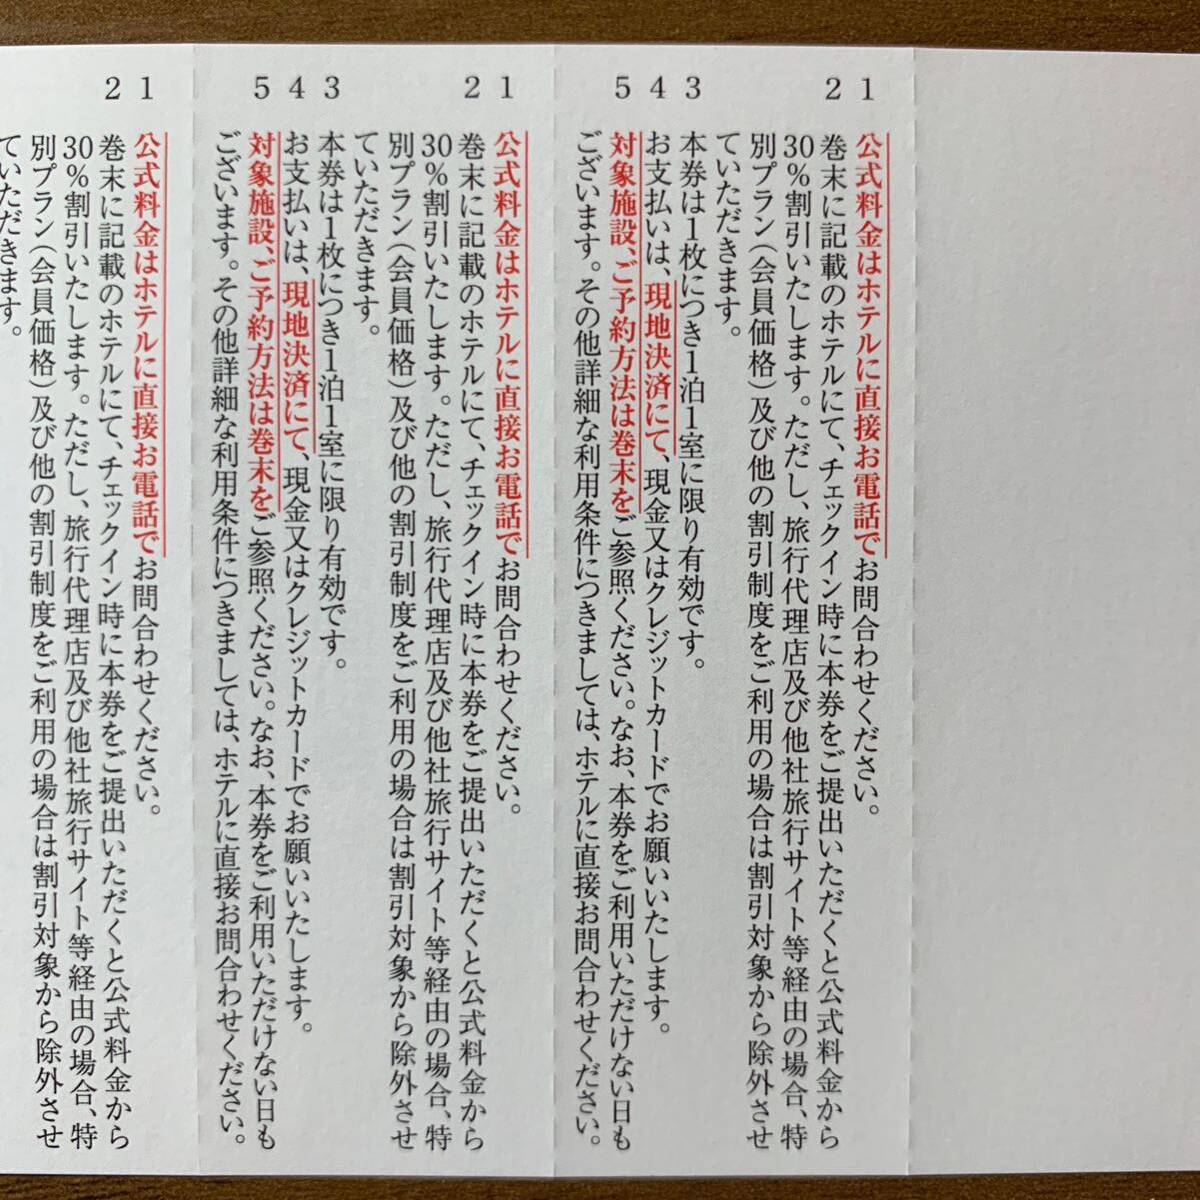 1 公式料金はホテルに直接お電話でお問合わせください。
2 巻末に記載のホテルにて、チェックイン時に本券をご提出いただくと公式料金から
30%割引いたします。ただし、旅行代理店及び他社旅行サイト等経由の場合、特
別プラン(会員価格)及び他の割引制度をご利用の場合は割引対象から除外させ
ていただきます。
3 本券は1枚につき1泊1室に限り有効です。
4 お支払いは、現地決済にて、現金又はクレジットカードでお願いいたします。
5 対象施設、ご予約方法は巻末をご参照ください。なお、本券をご利用いただけない日も
ございます。その他詳細な利用条件につきましては、ホテルに直接お問合わせください。
1 公式料金はホテルに直接お電話でお問合わせください。
2 巻末に記載のホテルにて、チェックイン時に本券をご提出いただくと公式料金から
30%割引いたします。ただし、旅行代理店及び他社旅行サイト等経由の場合、特
別プラン(会員価格)及び他の割引制度をご利用の場合は割引対象から除外させ
ていただきます。
3 本券は1枚につき1泊1室に限り有効です。
4 お支払いは、現地決済にて、現金又はクレジットカードでお願いいたします。
5 対象施設、ご予約方法は巻末をご参照ください。なお、本券をご利用いただけない日も
ございます。その他詳細な利用条件につきましては、ホテルに直接お問合わせください。
1 公式料金はホテルに直接お電話でお問合わせください。
2 巻末に記載のホテルにて、チェックイン時に本券をご提出いただくと公式料金から
30%割引いたします。ただし、旅行代理店及び他社旅行サイト等経由の場合、特
別プラン(会員価格)及び他の割引制度をご利用の場合は割引対象から除外させ
ていただきます。